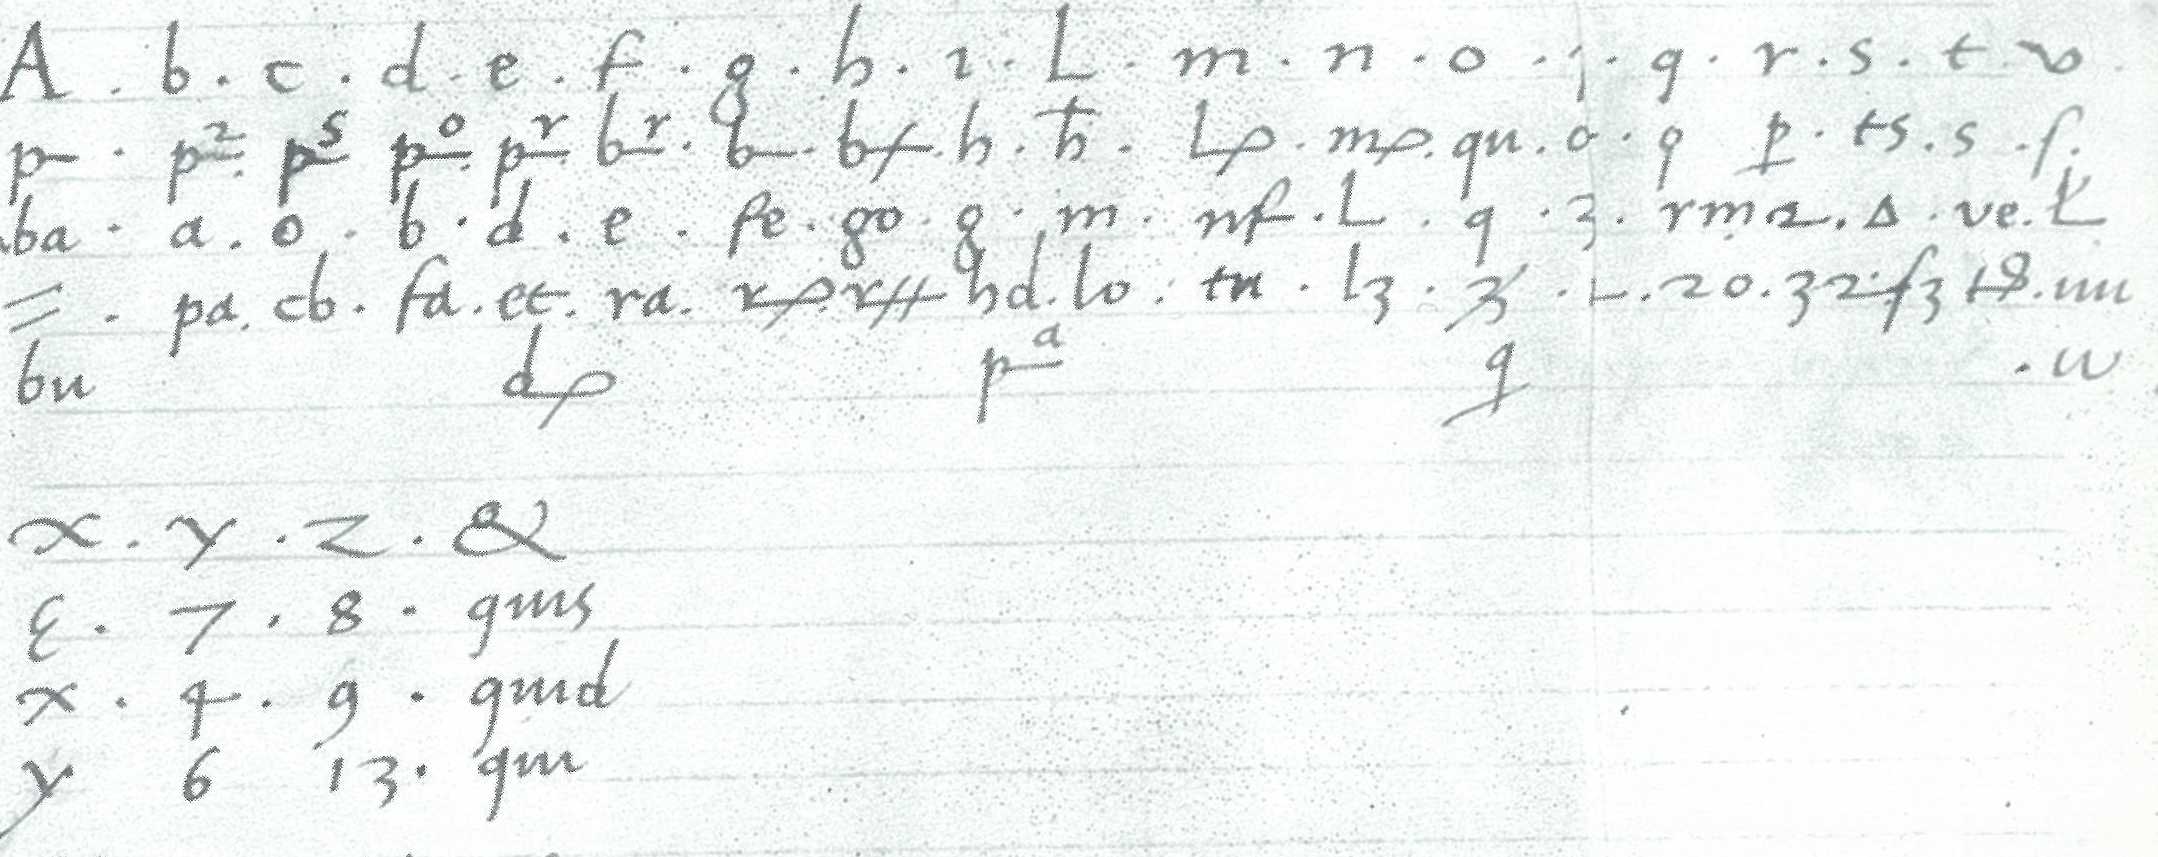 A . b . c . d . e . f . g . h . i . L . m . n . o . p . q . r . s . t . v .
p . p² . pˢ pº . pʳ . bʳ . b . bf . h . ħ . Lp . mp . qu . o . q p . ts . s . f .
ba . a . o . b . d . e . fe . go . g . m . nf . L . q . 3 . rma . Δ . ve . Ł
pa . cb . fa . et . ra . hd . lo . tu . l3 . 3 . L . 20 . 32 . f3 t8 . uu
bu dp pᵃ q . w
x . y . z . &
ε . 7 . 8 . qms
x . 4 . 9 . qmd
y 6 13 . qm